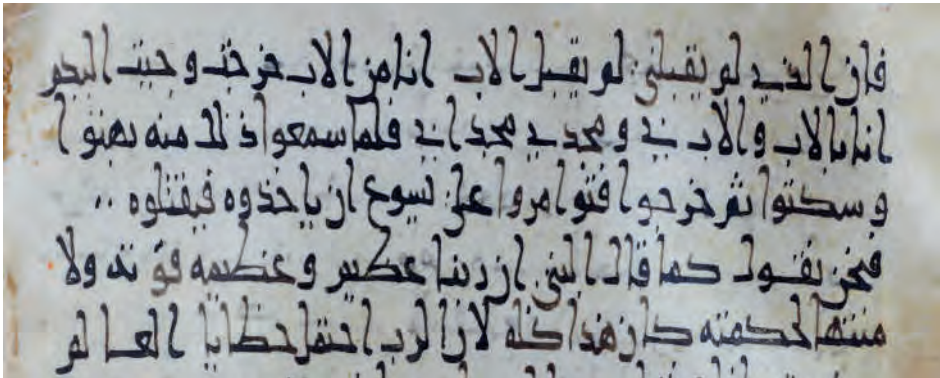 فان الذي لم يقبلني لم يقبل الاب انا من الاب خرجت وجيت اليكم
انا بالاب والاب بي ومجدي مجدابي فلما سمعوا ذلك منه بهتوا
وسكتوا ثم خرجوا فتوامروا على يسوع ان ياخذوه فيقتلوه ..
فنحن نقول كما قال النبي ان ربنا عظيم وعظيمه قوته ولا
منتها لحكمته كان هذا كله لان الرب احتمل خطايا العالم